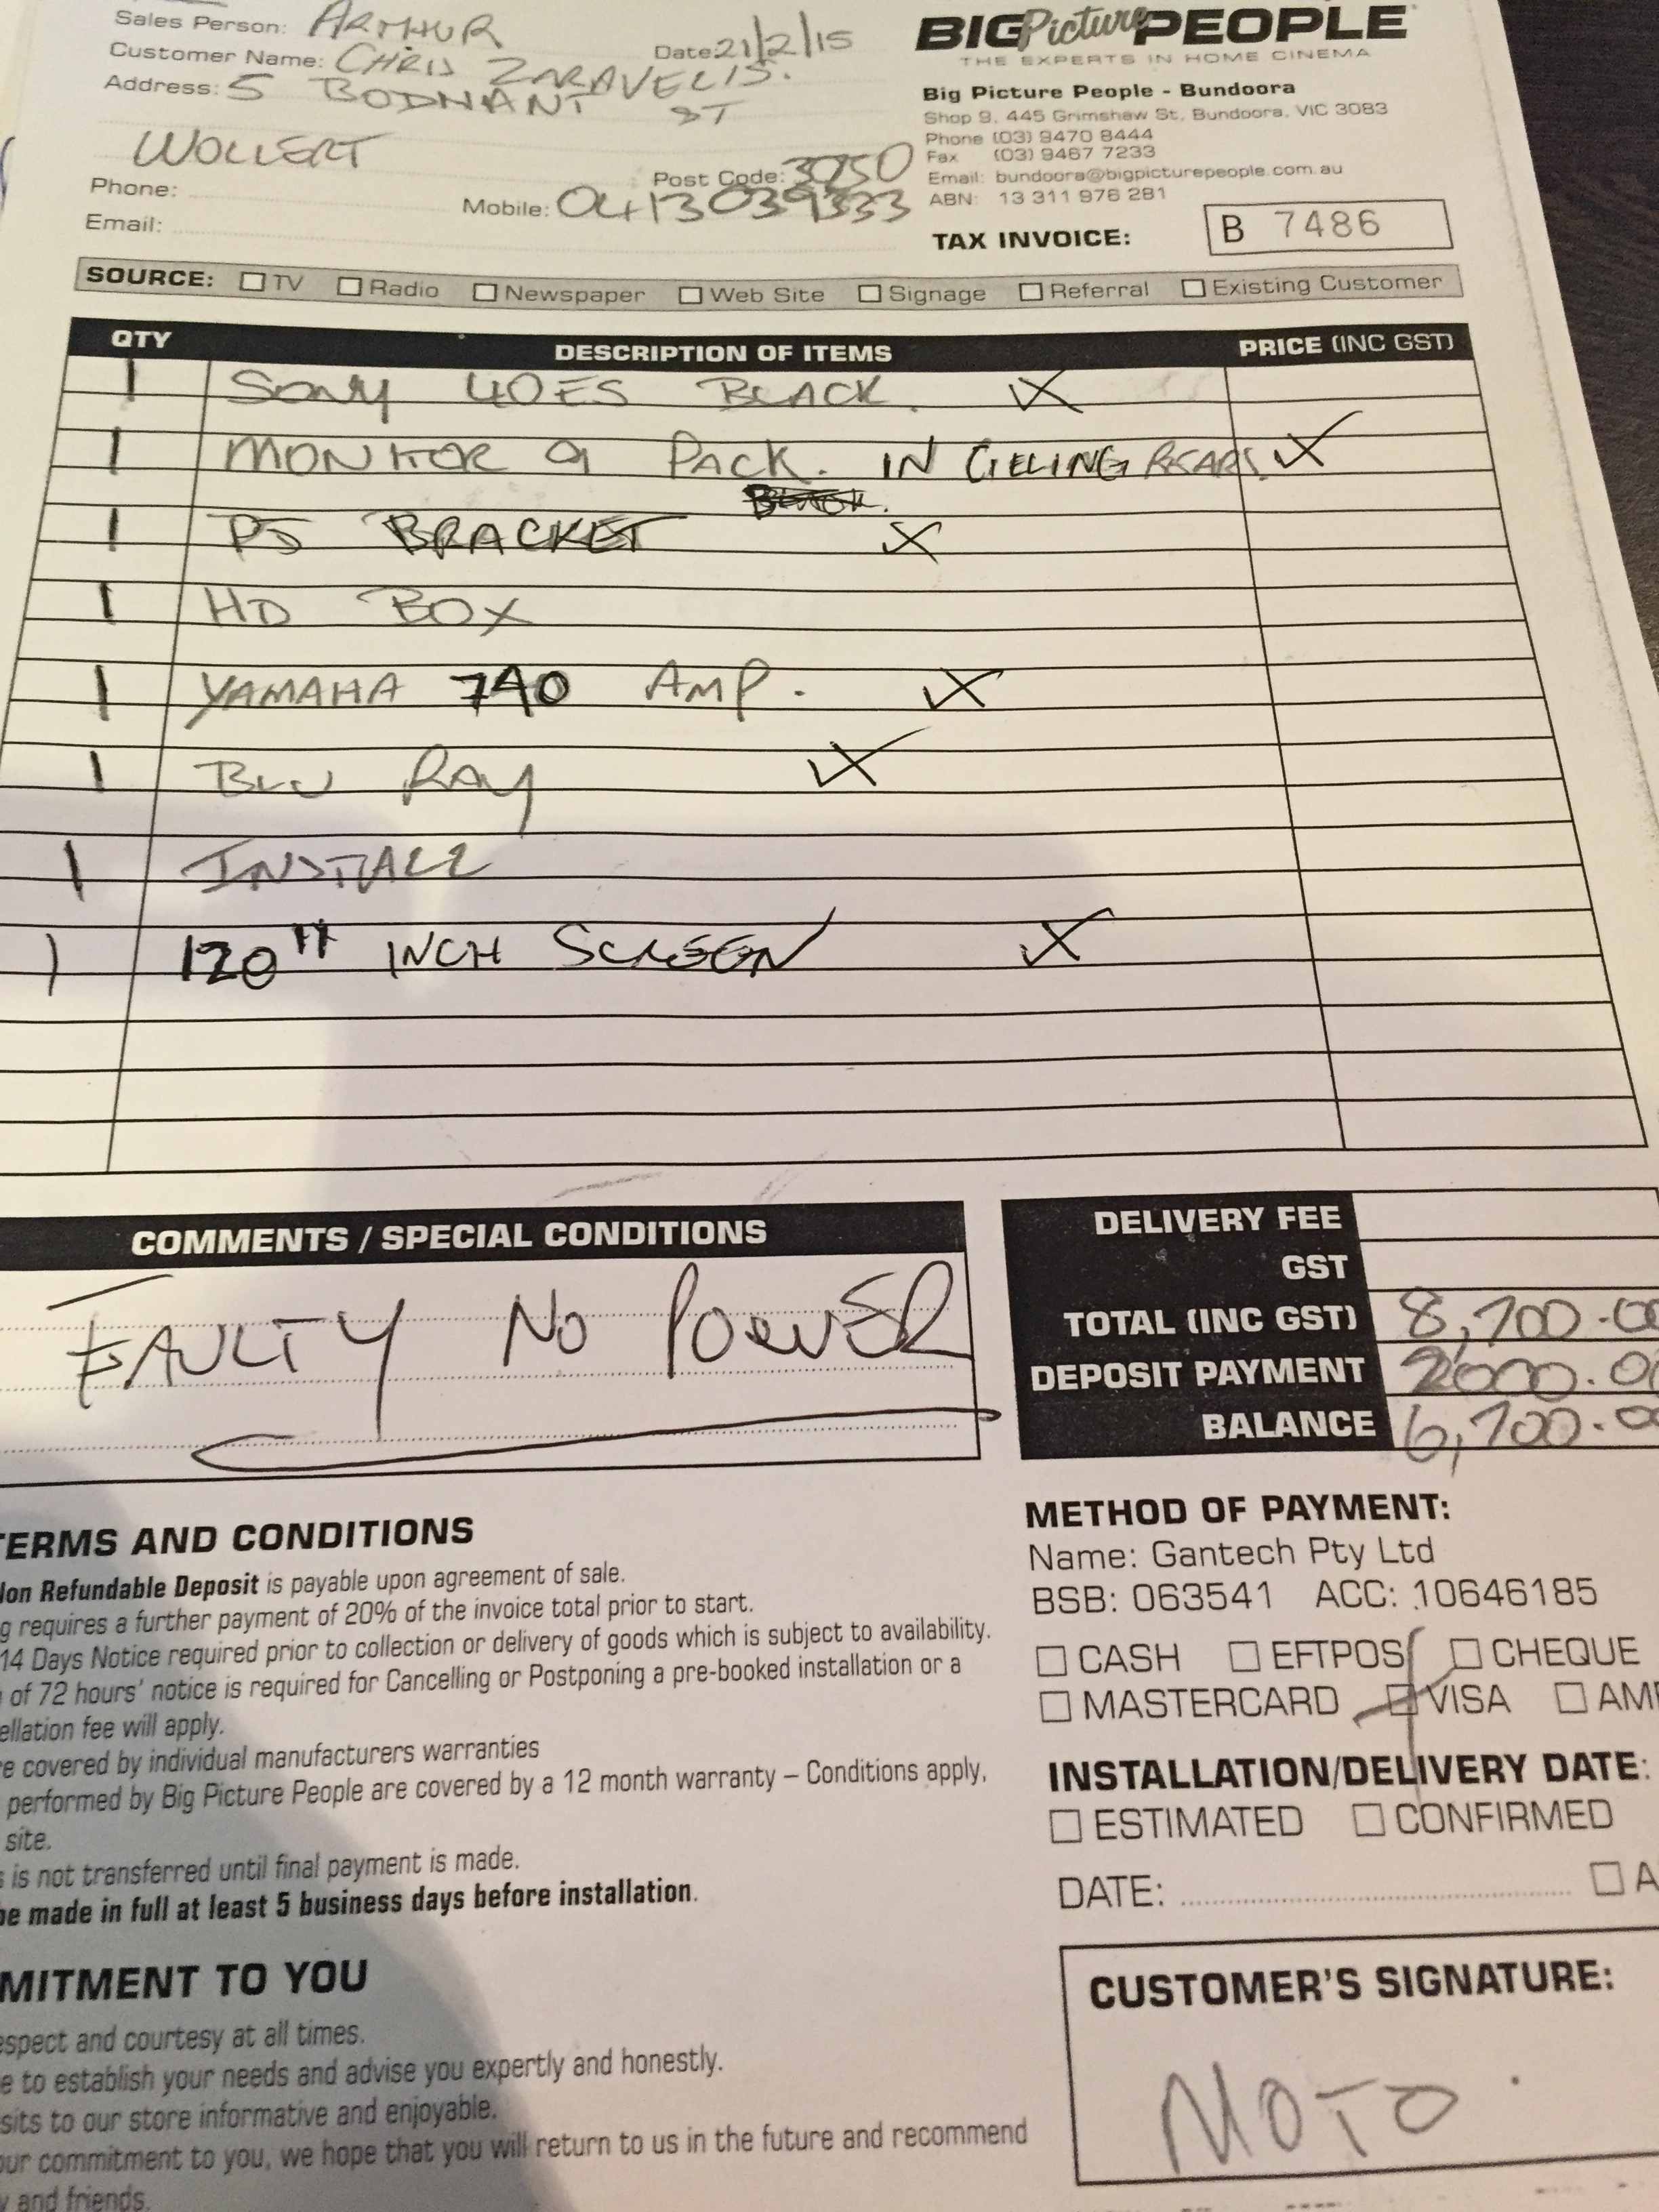 Sales Person: ARTHUR
Date: 21/2/15
Customer Name: CHRIS ZARAVELIS.
Address: 5 BODNANT ST
WOLLERT
Post Code: 3750
Phone:
Mobile: 0413039333
Email:
BIG Picture PEOPLE
THE EXPERTS IN HOME CINEMA
Big Picture People - Bundoora
Shop 9, 445 Grimshaw St, Bundoora, VIC 3083
Phone (03) 9470 8444
Fax (03) 9467 7233
Email: bundoora@bigpicturepeople.com.au
ABN: 13 311 976 281
TAX INVOICE: B 7486
SOURCE: TV Radio Newspaper Web Site Signage Referral Existing Customer
QTY DESCRIPTION OF ITEMS PRICE (INC GST)
1 SONY 40ES BLACK.
1 MONITOR 9 PACK. IN CIELING REARS.
1 PJ BRACKET
1 HD BOX
1 YAMAHA 740 AMP.
1 BLU RAY
1 INSTALL
1 120" INCH SCREEN
COMMENTS / SPECIAL CONDITIONS
FAULTY NO POWER
DELIVERY FEE
GST
TOTAL (INC GST) 8,700.00
DEPOSIT PAYMENT 2000.00
BALANCE 6,700.00
TERMS AND CONDITIONS
Non Refundable Deposit is payable upon agreement of sale.
g requires a further payment of 20% of the invoice total prior to start.
14 Days Notice required prior to collection or delivery of goods which is subject to availability.
of 72 hours' notice is required for Cancelling or Postponing a pre-booked installation or a
ellation fee will apply.
re covered by individual manufacturers warranties
performed by Big Picture People are covered by a 12 month warranty – Conditions apply,
site.
s is not transferred until final payment is made.
be made in full at least 5 business days before installation.
MITMENT TO YOU
espect and courtesy at all times.
e to establish your needs and advise you expertly and honestly.
sits to our store informative and enjoyable.
our commitment to you, we hope that you will return to us in the future and recommend
y and friends.
METHOD OF PAYMENT:
Name: Gantech Pty Ltd
BSB: 063541 ACC: 10646185
CASH EFTPOS CHEQUE
MASTERCARD VISA AM
INSTALLATION/DELIVERY DATE:
ESTIMATED CONFIRMED
DATE: A
CUSTOMER'S SIGNATURE:
MOTO.